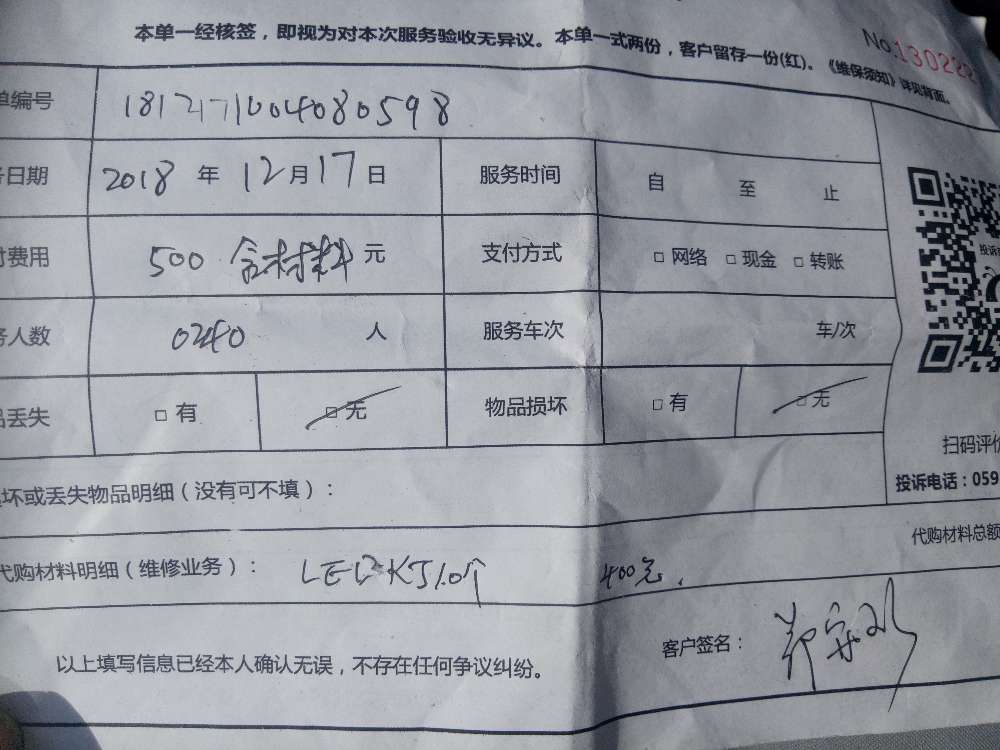 本单一经核签，即视为对本次服务验收无异议。本单一式两份，客户留存一份(红)。《维保须知》详见背面。
No.130222
单编号 1812171004080598
日期 2018 年 12 月 17 日 服务时间 自 至 止
付费用 500 含材料 元 支付方式 □ 网络 □ 现金 □ 转账
务人数 0240 人 服务车次 车/次
品丢失 □ 有 □ 无 物品损坏 □ 有 □ 无
扫码评价
投诉电话：059
坏或丢失物品明细（没有可不填）：
代购材料总额
代购材料明细（维修业务）： 400元.
客户签名：
以上填写信息已经本人确认无误，不存在任何争议纠纷。